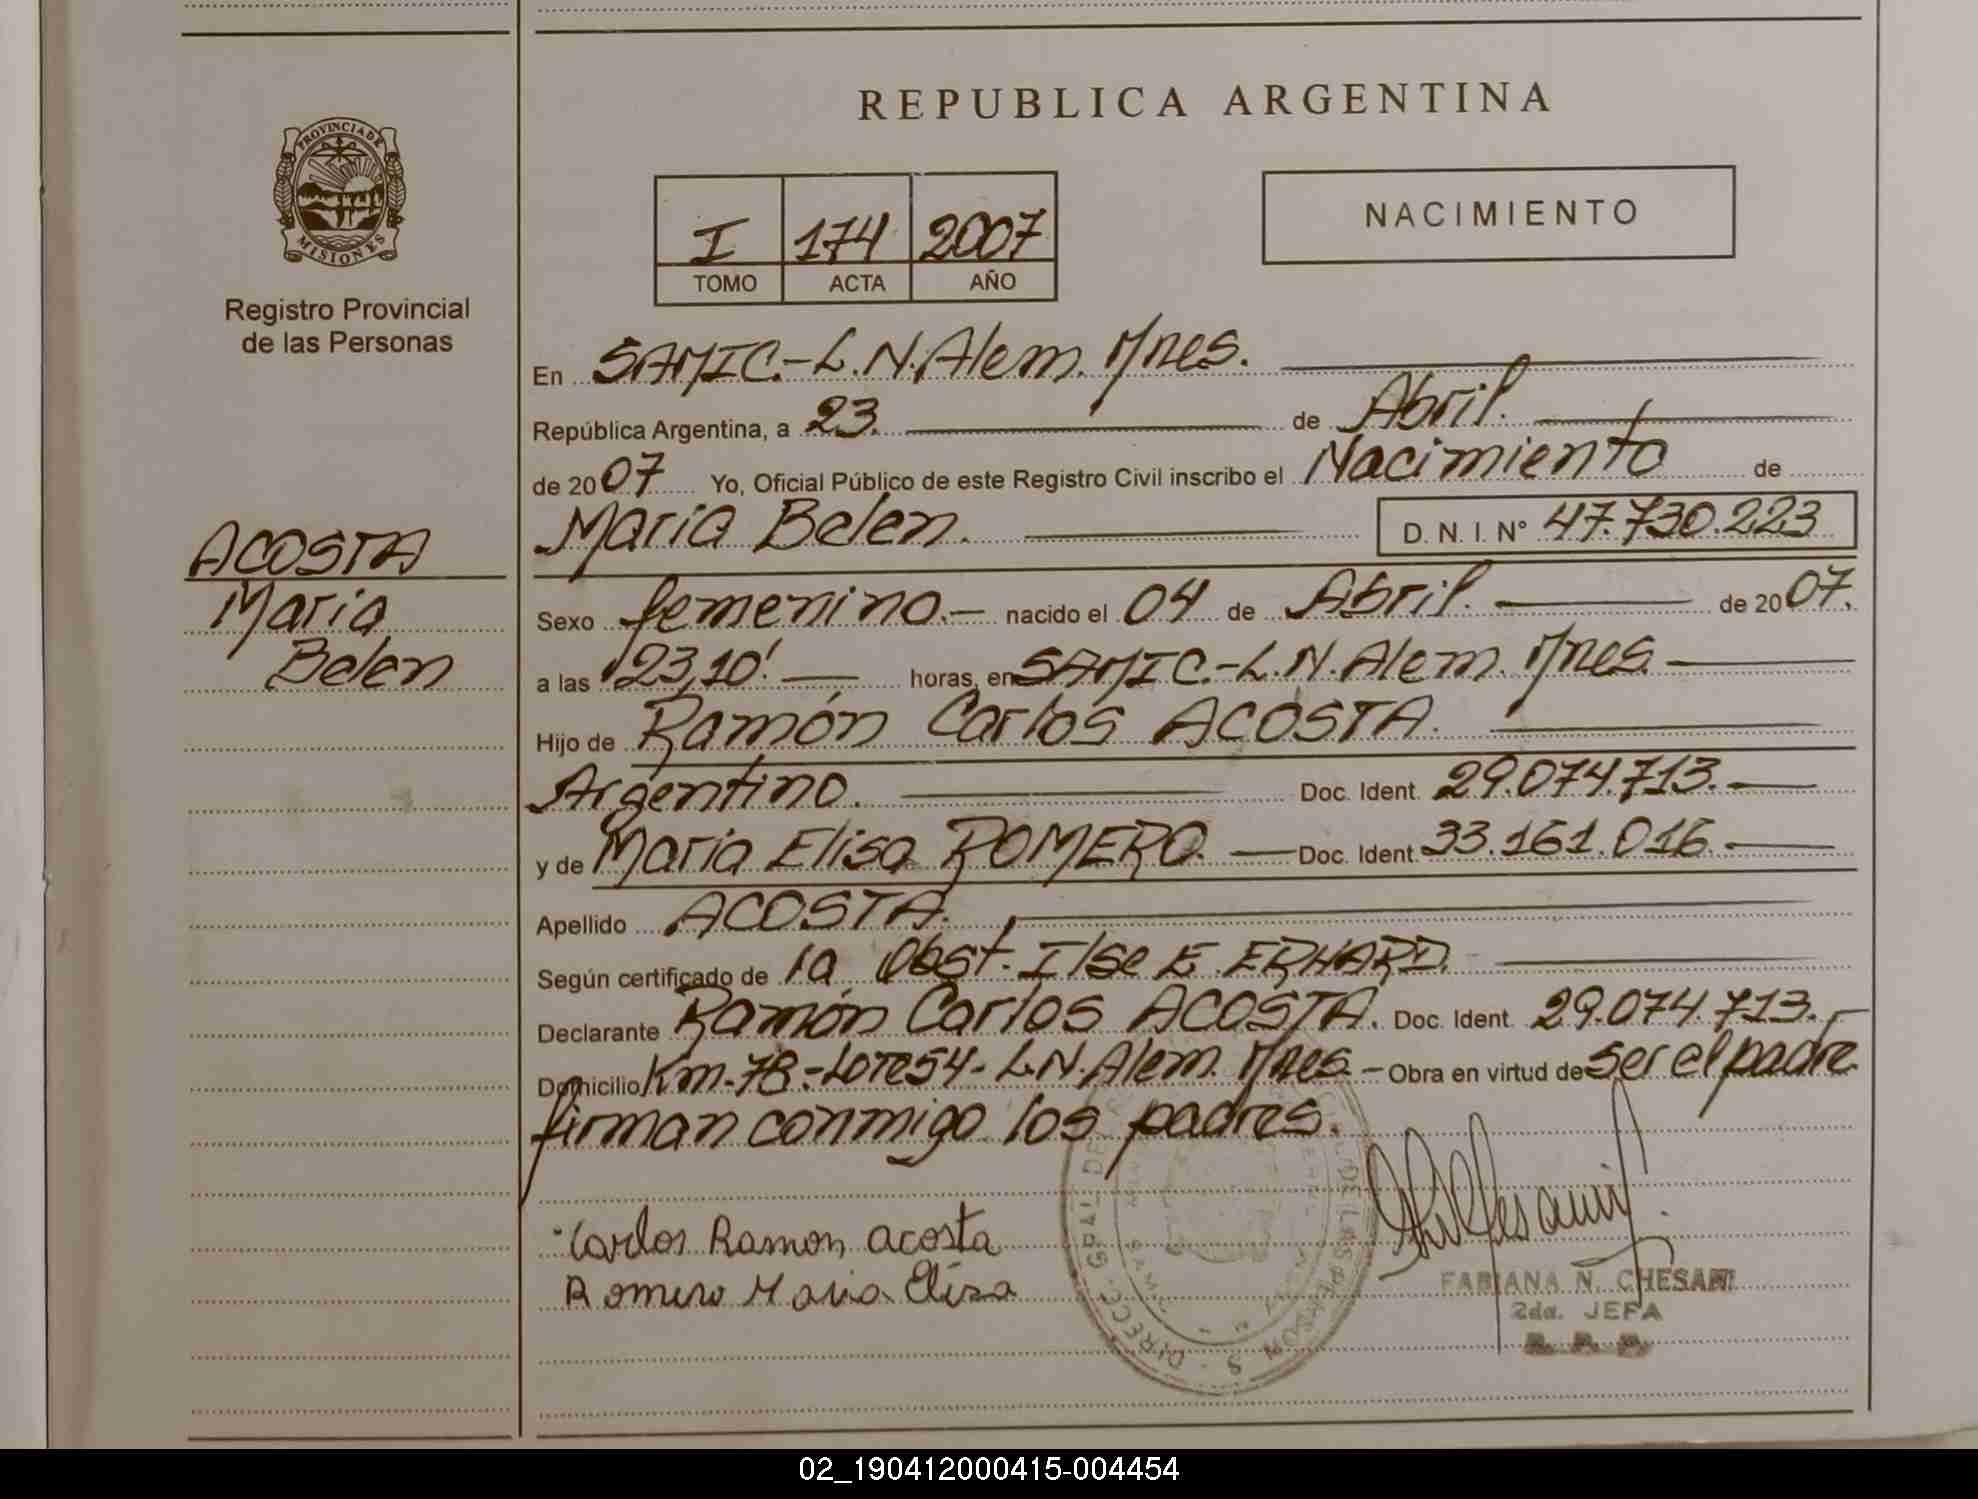 REPUBLICA ARGENTINA
PROVINCIA DE MISIONES
Registro Provincial
de las Personas
I 174 2007
TOMO ACTA AÑO
NACIMIENTO
ACOSTA
Maria
Belen
En SAMIC.-L.N.Alem. Mnes.
República Argentina, a 23. de Abril.
de 2007 Yo, Oficial Público de este Registro Civil inscribo el Nacimiento de
Maria Belen. D. N. I. N° 47.730.223
Sexo femenino.- nacido el 04 de Abril. de 2007.
a las 23,10'. horas, en SAMIC.-L.N.Alem. Mnes.
Hijo de Ramón Carlos ACOSTA.
Argentino. Doc. Ident. 29.074.713.
y de Maria Elisa ROMERO. Doc. Ident. 33.161.016.
Apellido ACOSTA.
Según certificado de la Obst. Ilse E. ERHARD.
Declarante Ramón Carlos ACOSTA. Doc. Ident. 29.074.713.-
Domicilio Km.78.-Lote54-L.N.Alem. Mnes.- Obra en virtud de ser el padre
firman conmigo los padres.
Carlos Ramon acosta
Romero Maria Elisa
FABIANA N. CHESANI
2da. JEFA
02_190412000415-004454